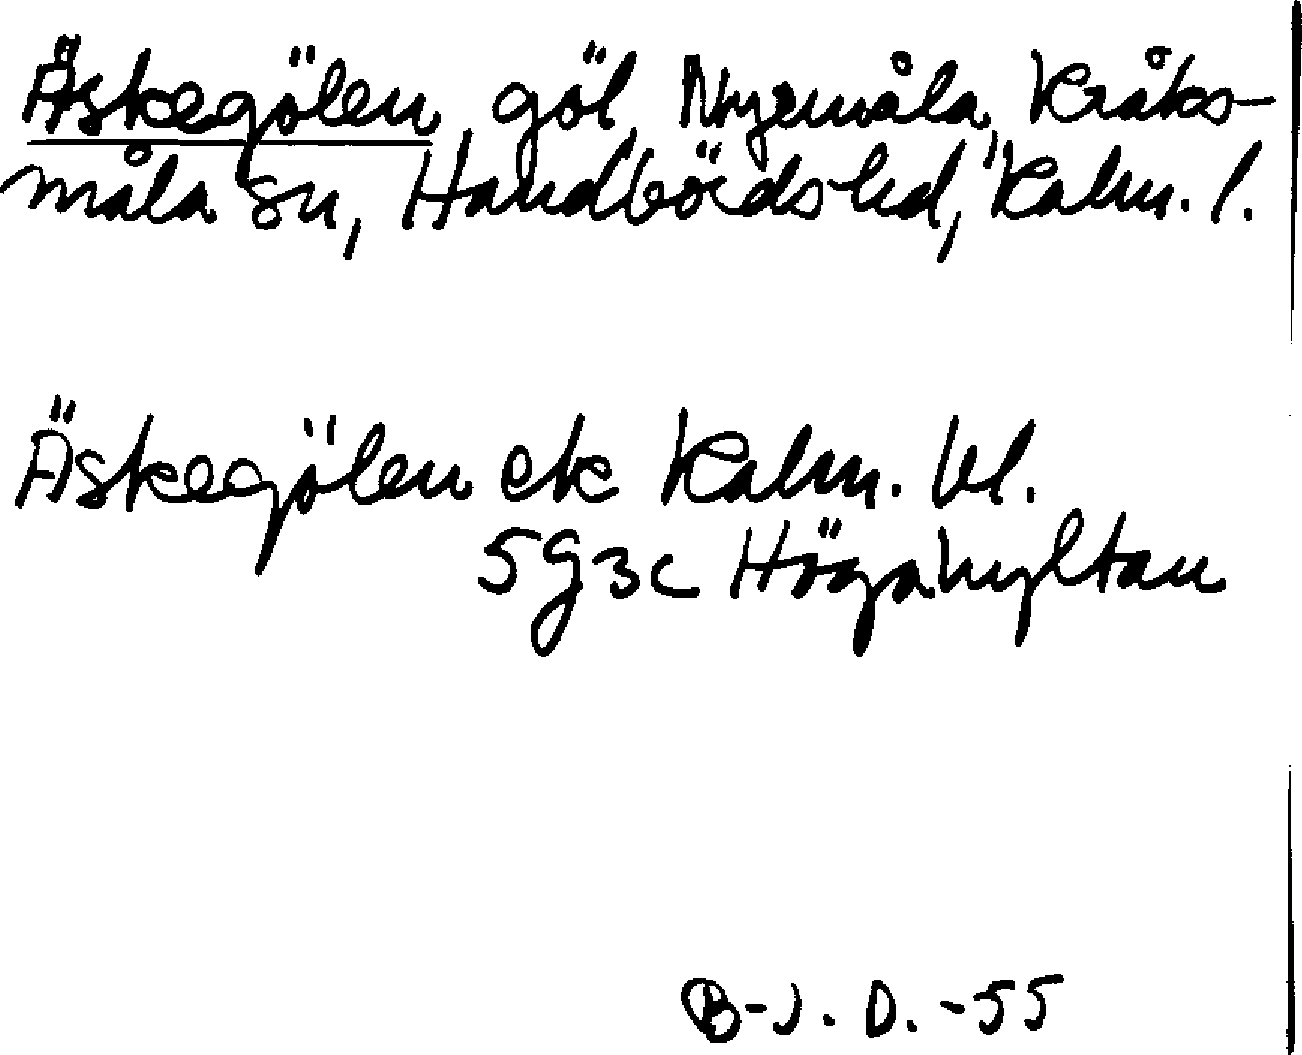 Äskegölen, göl, Nyemåla, Kråks-
måla sn, Handbörds hd, Kalm. l.
Äskegölen ek Kalm. bl.
5g3c Högahyltan
B-J. D. -55